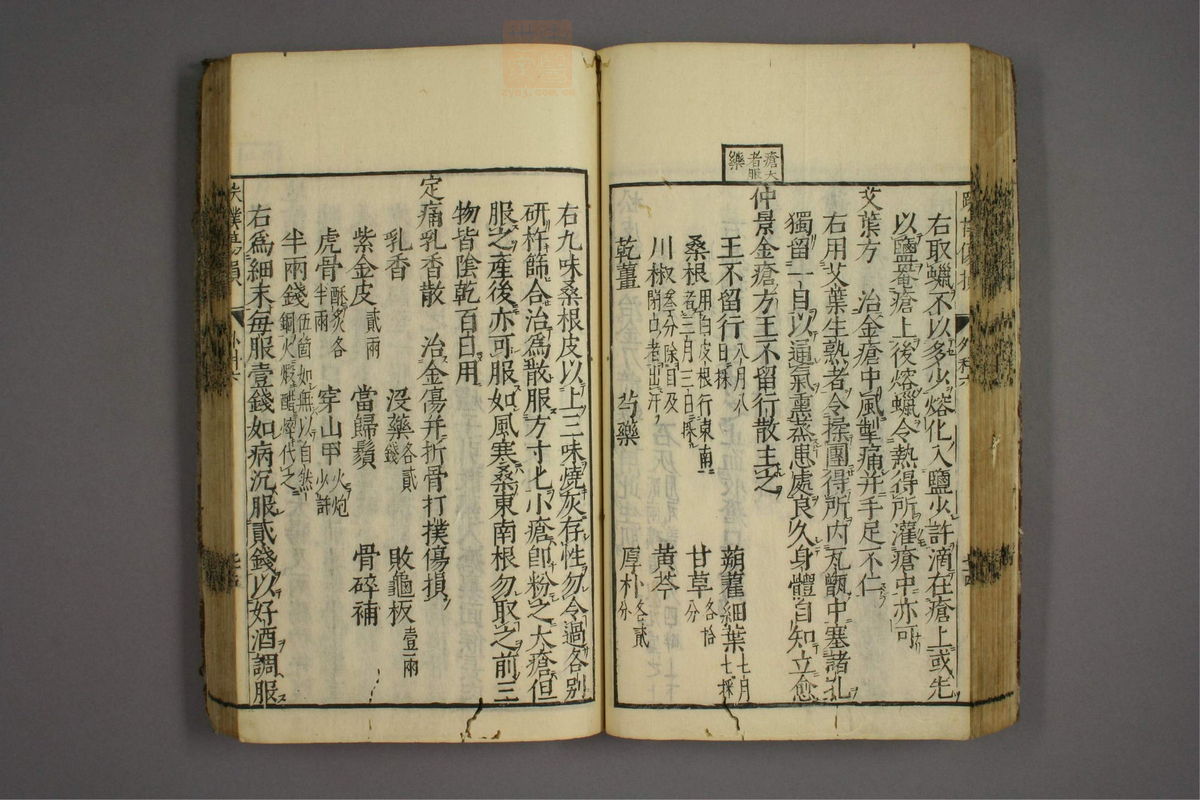 瘡大
者服
藥
右取蠟不以多少熔化入鹽少許滴在瘡上或先
以鹽菴瘡上後熔蠟令熱得所灌瘡中亦可
艾葉方　治金瘡中風掣痛并手足不仁
右用艾葉生熟者令揉團得所内瓦甑中塞諸孔
獨留一目以通氣熏蒸患處良久身體自知立愈
仲景金瘡方王不留行散主之
王不留行八月八日採　蒴藋細葉七月七採
桑根用白皮根行東南者三月三日採　甘草各拾分
川椒叁分除目及閉口者出汗　黄芩
乾薑　芍藥　厚朴各貳分
右九味桑根皮以上三味燒灰存性勿令過各別
研杵篩合治爲散服方寸匕小瘡即粉之大瘡但
服之産後亦可服如風寒桑東南根勿取之前三
物皆陰乾百日用
定痛乳香散　治金傷并折骨打撲傷損
乳香　沒藥各貳錢　敗龜板壹兩
紫金皮貳兩　當歸鬚　骨碎補
虎骨酥炙各半兩　穿山甲火炮少許
半兩錢伍箇如無以自然銅火煅醋淬代之
右爲細末每服壹錢如病沉服貳錢以好酒調服